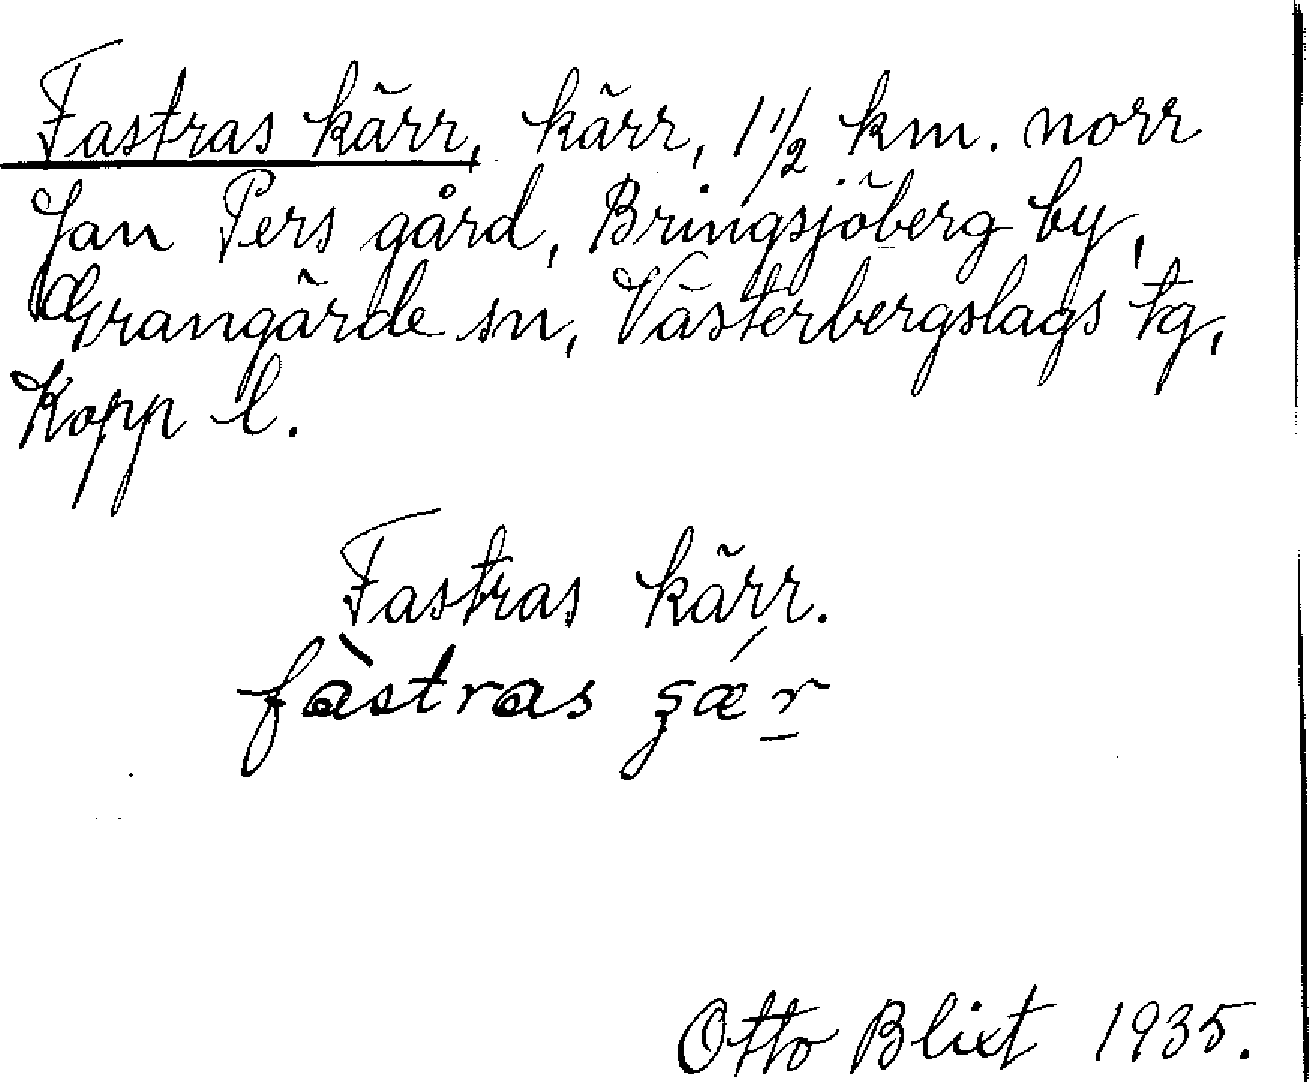 Fastras kärr, kärr, 1 1/2 km. norr
Jan Pers gård, Bringsjöberg by,
Grangärde sn, Västerbergslags tg,
Kopp l.
Fastras kärr.
fàstras şǽr
Otto Blixt 1935.